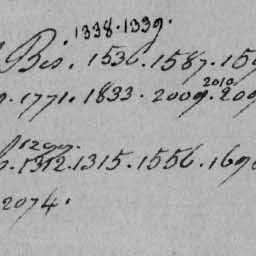 1338.1339.
Bis. 1536.1587.159
9.1771.1833.2009.209
2010
1299.
6.1312.1315.1556.1696
2074.